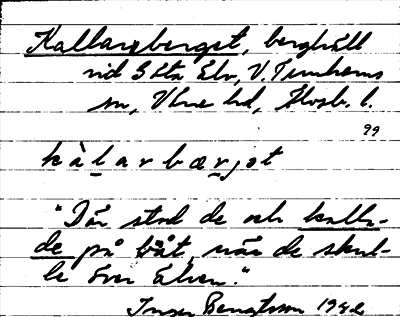 Kallareberget, berghäll
vid Göta Älv, V. Tunhems
sn, Väne hd, Älvsb. l.
99
kàlarbærjet
"Där stod de och kalla-
de på båt, när de skul-
le över älven."
Inger Bengtsson 1942